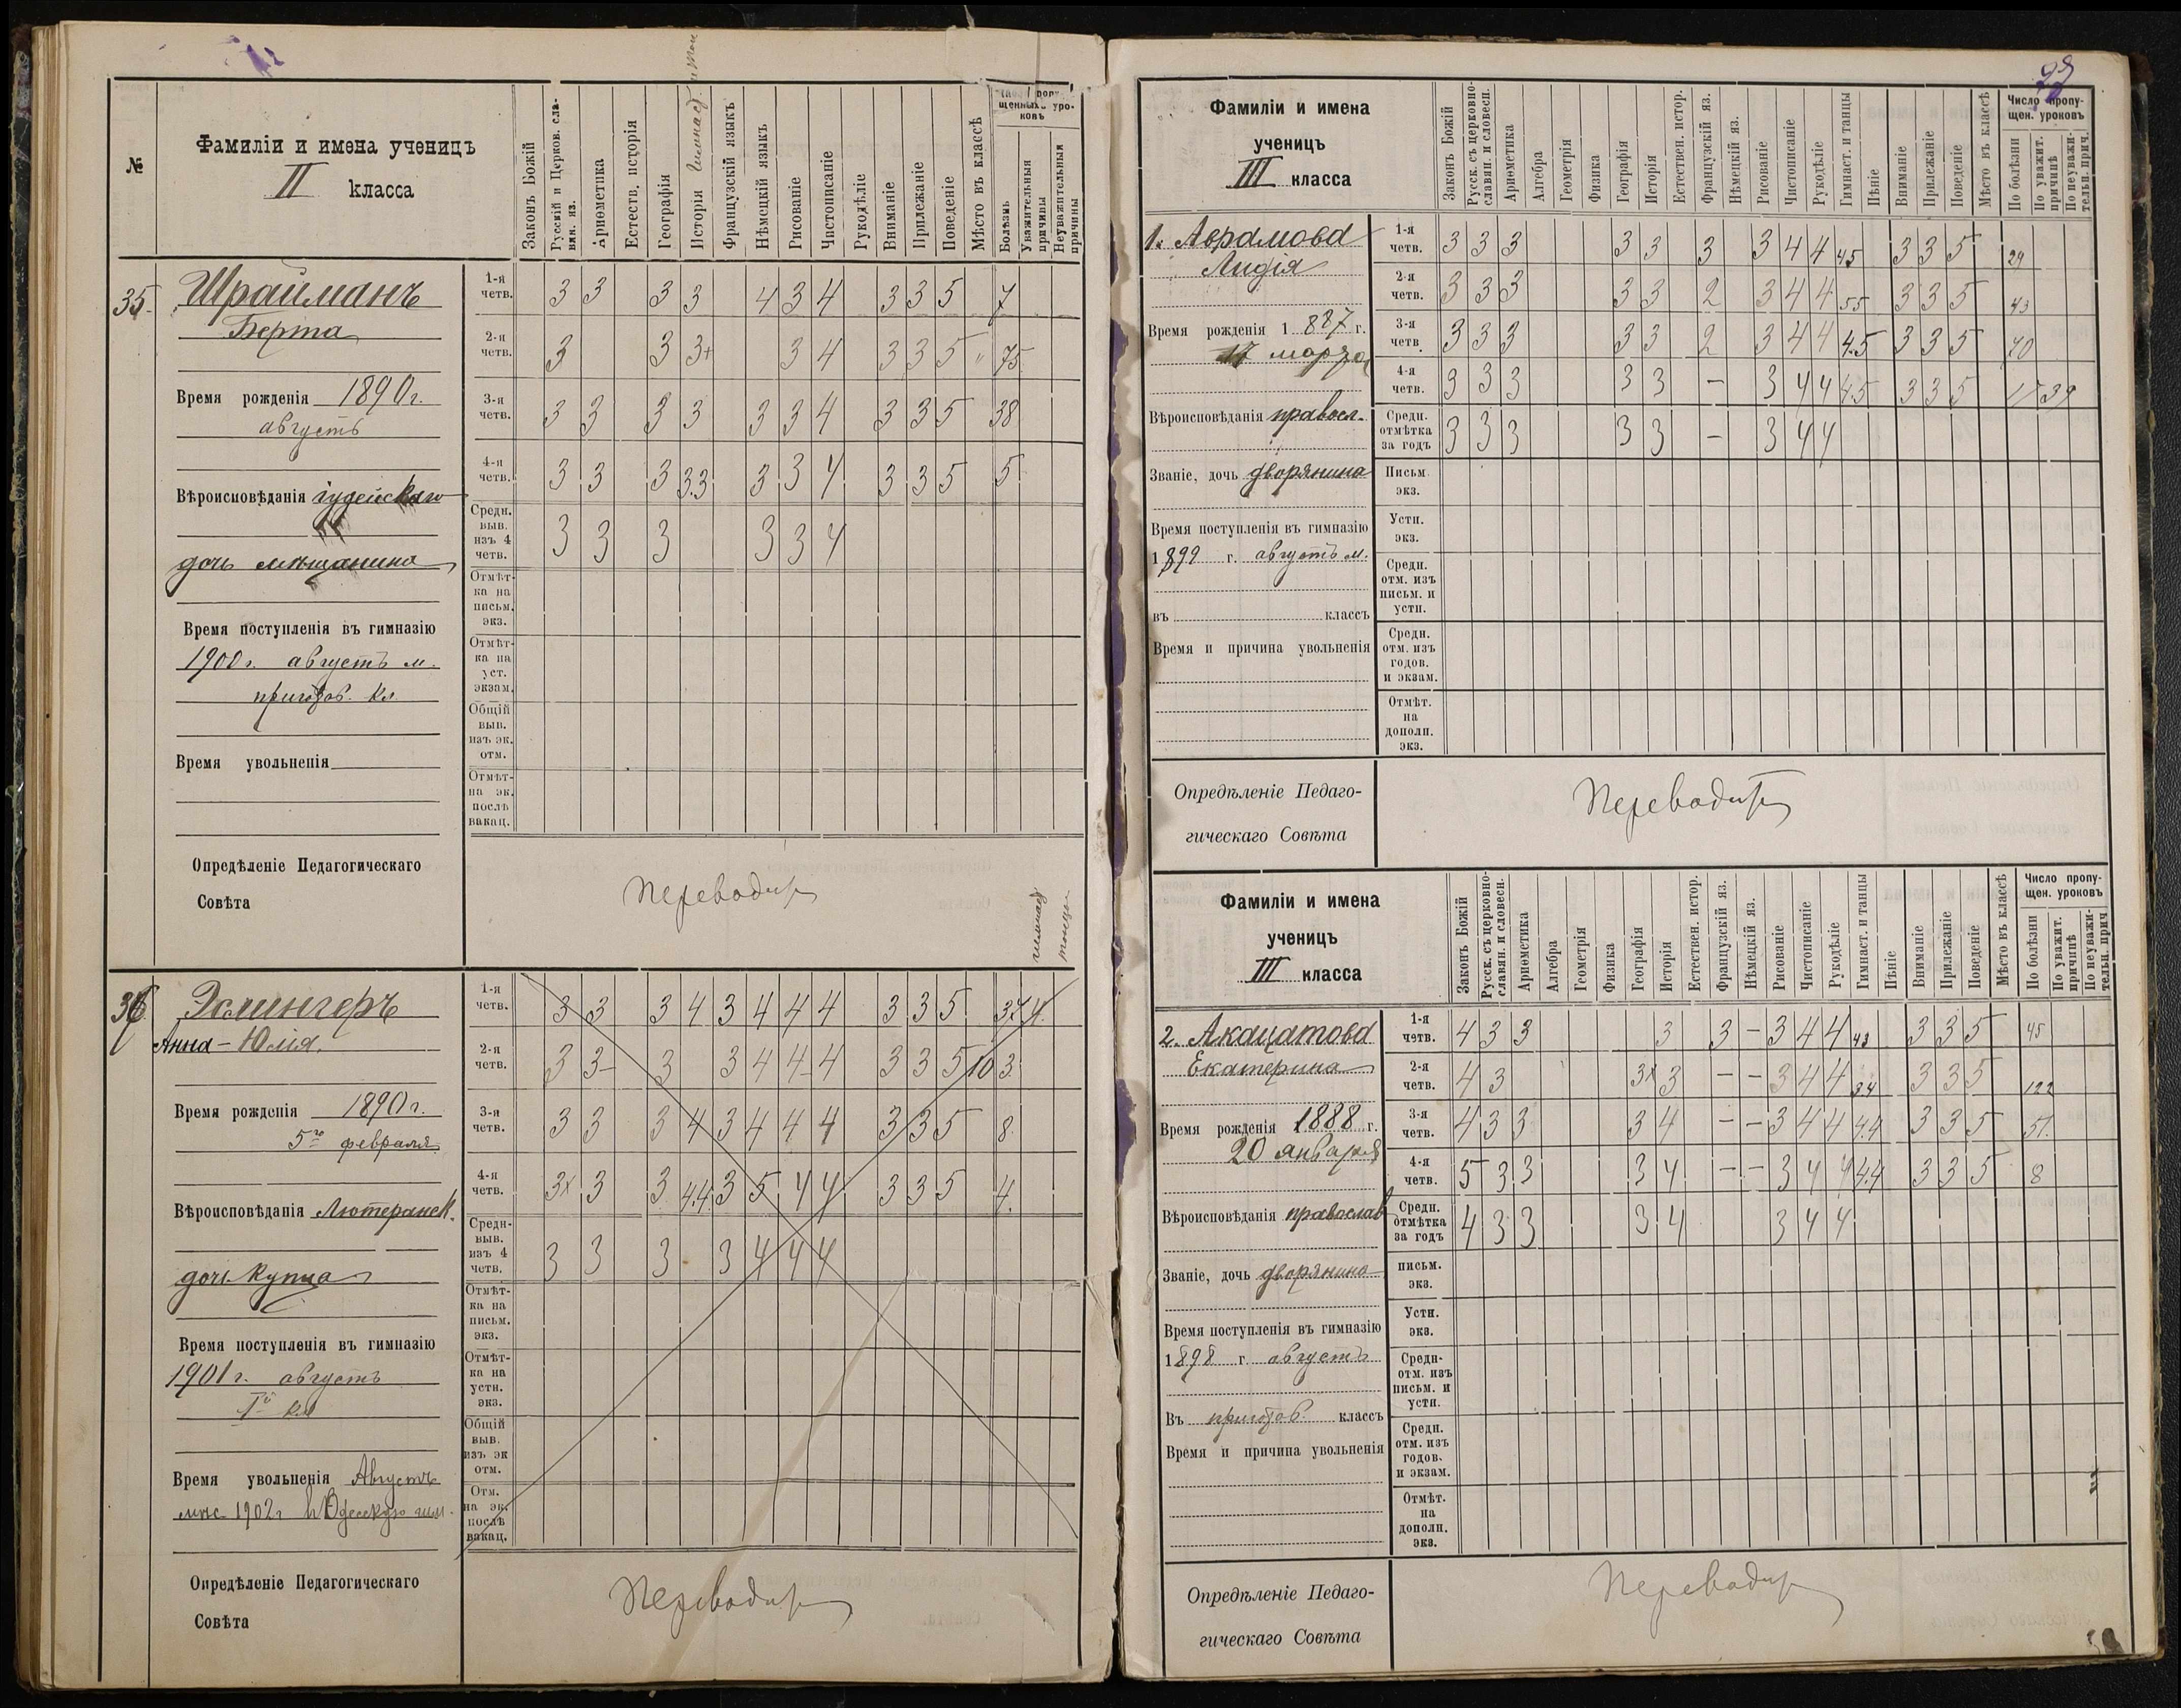 №
Фамиліи и имена ученицъ
II класса
Законъ Божій
Русскій и Церков. сла-
вян. яз.
Ариѳметика
Естеств. исторія
Географія
Исторія
Французскій языкъ
Нѣмецкій языкъ
Рисованіе
Чистописаніе
Рукодѣліе
Вниманіе
Прилежаніе
Поведеніе
Мѣсто въ классѣ
щенныхъ уро-
ковъ
Болѣзнь
Уважительныя
причины
Неуважительныя
причины
35. Шрайманъ
Берта
Время рожденія 1890 г.
августъ
Вѣроисповѣданія іудейскаго
дочь мѣщанина
Время поступленія въ гимназію
1900 г. августъ м.
приготов. кл
Время увольненія
1-я четв. 3 3 3 3 4 3 4 3 3 5 7
2-я четв. 3 3 3+ 3 4 3 3 5 " 75
3-я четв. 3 3 3 3 3 3 4 3 3 5 38
4-я четв. 3 3 3 3.3 3 3 4 3 3 5 5
Средн. выв. изъ 4 четв. 3 3 3 3 3 4
Отмѣт-
ка на
письм.
экз.
Отмѣт-
ка на
уст.
экзам.
Общій
выв.
изъ эк.
отм.
Отмѣт-
на эк.
послѣ
вакац.
Опредѣленіе Педагогическаго
Совѣта
Переводит
36 Эслингеръ
Анна-Юлія.
Время рожденія 1890 г.
5го февраля
Вѣроисповѣданія Лютеранск.
дочь купца
Время поступленія въ гимназію
1901 г. августъ
Iй кл
Время увольненія Августъ
мѣс 1902 г в Одесскую гим.
1-я четв. 3 3 3 4 3 4 4 4 3 3 5 37 4.
2-я четв. 3 3- 3 3 4 4 4 3 3 5 10 3.
3-я четв. 3 3 3 4 3 4 4 4 3 3 5 8
4-я четв. 3x 3 3 4.4 3 5 4 4 3 3 5 4.
Средн- выв. изъ 4 четв. 3 3 3 3 4 4 4
Отмѣт-
ка на
письм.
экз.
Отмѣт-
ка на
устн.
экз.
Общій
выв.
изъ эк
отм.
Отм.
на эк.
послѣ
вакац.
Опредѣленіе Педагогическаго
Совѣта
Переводит
Фамиліи и имена
ученицъ
III класса
Законъ Божій
Русск. съ церковно-
славян. и словесн.
Ариѳметика
Алгебра
Геометрія
Физика
Географія
Исторія
Естествен. истор.
Французскій яз.
Нѣмецкій яз.
Рисованіе
Чистописаніе
Рукодѣліе
Гимнаст. и танцы
Пѣніе
Вниманіе
Прилежаніе
Поведеніе
Мѣсто въ классѣ
Число пропу-
щен. уроковъ
По болѣзни
По уважит.
причинѣ
По неуважи-
тельн. прич.
1. Аврамова
Лидія
Время рожденія 1 887 г.
17 марта
Вѣроисповѣданія правосл.
Званіе, дочь дворянина
Время поступленія въ гимназію
1 899 г. августъ м.
въ классъ
Время и причина увольненія
1-я четв. 3 3 3 3 3 3 3 4 4 45 3 3 5 29
2-я четв. 3 3 3 3 3 2 3 4 4 55 3 3 5 43
3-я четв. 3 3 3 3 3 2 3 4 4 4.5 3 3 5 70
4-я четв. 3 3 3 3 3 – 3 4 4 4.5 3 3 5 15 39
Средн. отмѣтка за годъ 3 3 3 3 3 – 3 4 4
Письм.
экз.
Устн.
экз.
Средн.
отм. изъ
письм. и
устн.
Средн.
отм. изъ
годов.
и экзам.
Отмѣт.
на
дополн.
экз.
Опредѣленіе Педаго-
гическаго Совѣта
Переводит
Фамиліи и имена
ученицъ
III класса
Законъ Божій
Русск. съ церковно-
славян. и словесн.
Ариѳметика
Алгебра
Геометрія
Физика
Географія
Исторія
Естествен. истор.
Французскій яз.
Нѣмецкій яз.
Рисованіе
Чистописаніе
Рукодѣліе
Гимнаст. и танцы
Пѣніе
Вниманіе
Прилежаніе
Поведеніе
Мѣсто въ классѣ
Число пропу-
щен. уроковъ
По болѣзни
По уважит.
причинѣ
По неуважи-
тельн. прич
2. Акацатова
Екатерина
Время рожденія 1888 г.
20 января
Вѣроисповѣданія православ
Званіе, дочь дворянина
Время поступленія въ гимназію
1898 г августъ
Въ приготов. классъ
Время и причина увольненія
1-я четв. 4 3 3 3 3 – 3 4 4 43 3 3 5 45
2-я четв. 4 3 3x 3 – – 3 4 4 34 3 3 5 122
3-я четв. 4 3 3 3 4 – – 3 4 4 4.4 3 3 5 51.
4-я четв. 5 3 3 3 4 – – 3 4 4 4.4 3 3 5 8
Средн. отмѣтка за годъ 4 3 3 3 4 3 4 4
письм.
экз.
Устн.
экз.
Средн-
отм. изъ
письм. и
устн.
Средн.
отм. изъ
годов.
и экзам.
Отмѣт.
на
дополн.
экз.
Опредѣленіе Педаго-
гическаго Совѣта
Переводит